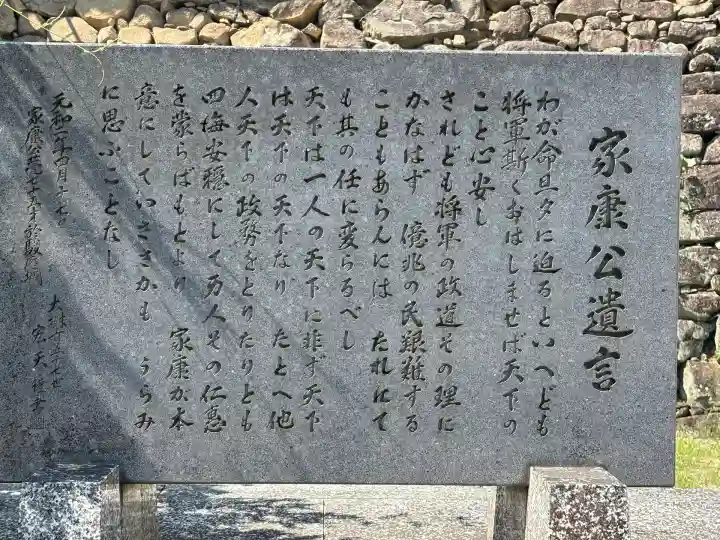 家康公遺言
わが命旦夕に迫るといへども
将軍斯くおはしませば天下の
こと心安し
されども将軍の政道その理に
かなはず 億兆の民艱難する
こともあらんには たれにて
も其の任に変らるべし
天下は一人の天下に非ず天下
は天下の天下なり たとへ他
人天下の政務をとりたりとも
四海安穏にして万人その仁恵
を蒙らばもとより 家康が本
意にしていささかも うらみ
に思ふことなし
元和二年四月十七日
家康公七十五才於駿府
大樹寺